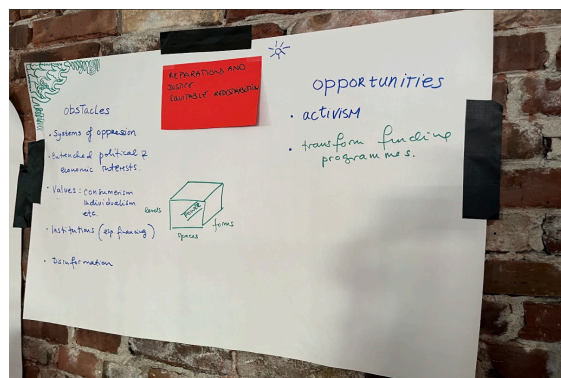 REPARATIONS AND
JUSTICE
EQUITABLE REDISTRIBUTION
obsTacles
• Systems of oppression
• Entrenched political &
economic interests.
• Values : consumerism
individualism
etc.
• Institutions (esp. financing)
• Disinformation
levels
POWER
forms
spaces
opportunities
• activism
• transform funding
programmes.